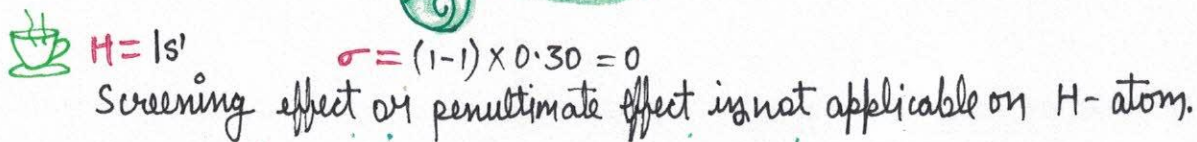 H = 1s¹ σ = (1-1) × 0.30 = 0
Screening effect or penultimate effect is not applicable on H-atom.